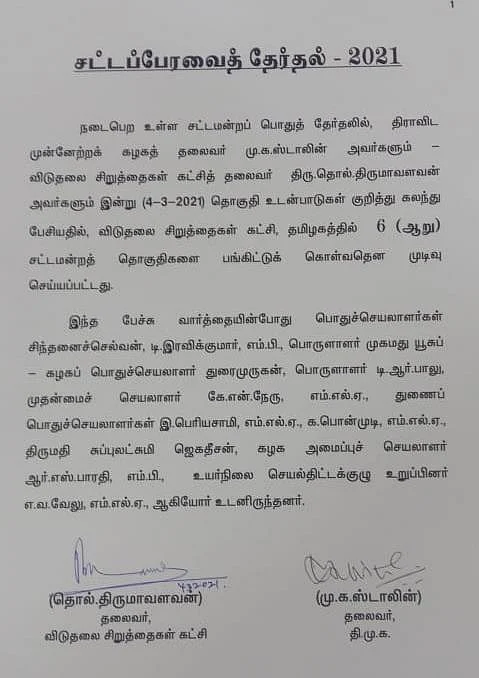 1
சட்டப்பேரவைத் தேர்தல் - 2021
நடைபெற உள்ள சட்டமன்றப் பொதுத் தேர்தலில், திராவிட
முன்னேற்றக் கழகத் தலைவர் மு.க.ஸ்டாலின் அவர்களும் –
விடுதலை சிறுத்தைகள் கட்சித் தலைவர் திரு.தொல்.திருமாவளவன்
அவர்களும் இன்று (4-3-2021) தொகுதி உடன்பாடுகள் குறித்து கலந்து
பேசியதில், விடுதலை சிறுத்தைகள் கட்சி, தமிழகத்தில் 6 (ஆறு)
சட்டமன்றத் தொகுதிகளை பங்கிட்டுக் கொள்வதென முடிவு
செய்யப்பட்டது.
இந்த பேச்சு வார்த்தையின்போது பொதுச்செயலாளர்கள்
சிந்தனைச்செல்வன், டி.இரவிக்குமார், எம்.பி., பொருளாளர் முகமது யூசுப்
– கழகப் பொதுச்செயலாளர் துரைமுருகன், பொருளாளர் டி.ஆர்.பாலு,
முதன்மைச் செயலாளர் கே.என்.நேரு, எம்.எல்.ஏ., துணைப்
பொதுச்செயலாளர்கள் இ.பெரியசாமி, எம்.எல்.ஏ., க.பொன்முடி, எம்.எல்.ஏ.,
திருமதி சுப்புலட்சுமி ஜெகதீசன், கழக அமைப்புச் செயலாளர்
ஆர்.எஸ்.பாரதி, எம்.பி., உயர்நிலை செயல்திட்டக்குழு உறுப்பினர்
எ.வ.வேலு, எம்.எல்.ஏ., ஆகியோர் உடனிருந்தனர்.
432021.
(தொல்.திருமாவளவன்) (மு.க.ஸ்டாலின்)
தலைவர், தலைவர்,
விடுதலை சிறுத்தைகள் கட்சி தி.மு.க.